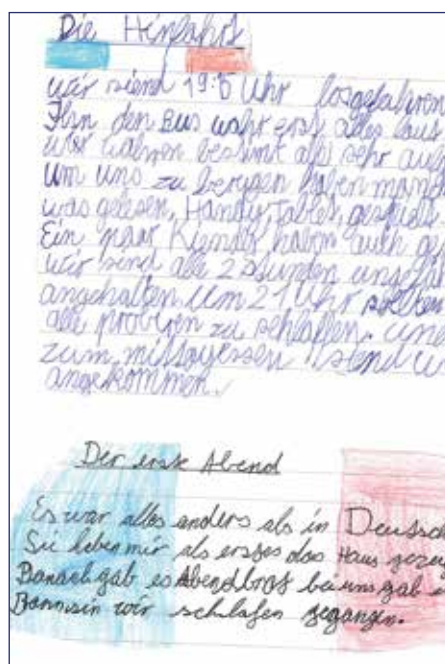 Die Hinfahrt
wir siend 19:15 Uhr losgefahren
Ihn den Bus wahr erst alles laut
wir wahren bestimt alle sehr auf
um uns zu berugen haben manche
was gelesen, Handy, Tablet, gespielt.
Ein paar Kiender haben auch ge
wir send alle 2 Stunden ungefä
angehalten. Um 21 Uhr sollten
alle probiren zu schlaffen. und
zum mittagessen siend wi
angekommen.
Der erste Abend
Es war alles anders als in Deutsch
Sie haben mir als erstes das Haus gezei
Danach gab es Abendbrot bei uns gab e
Dann sin wir schlafen gegangen.